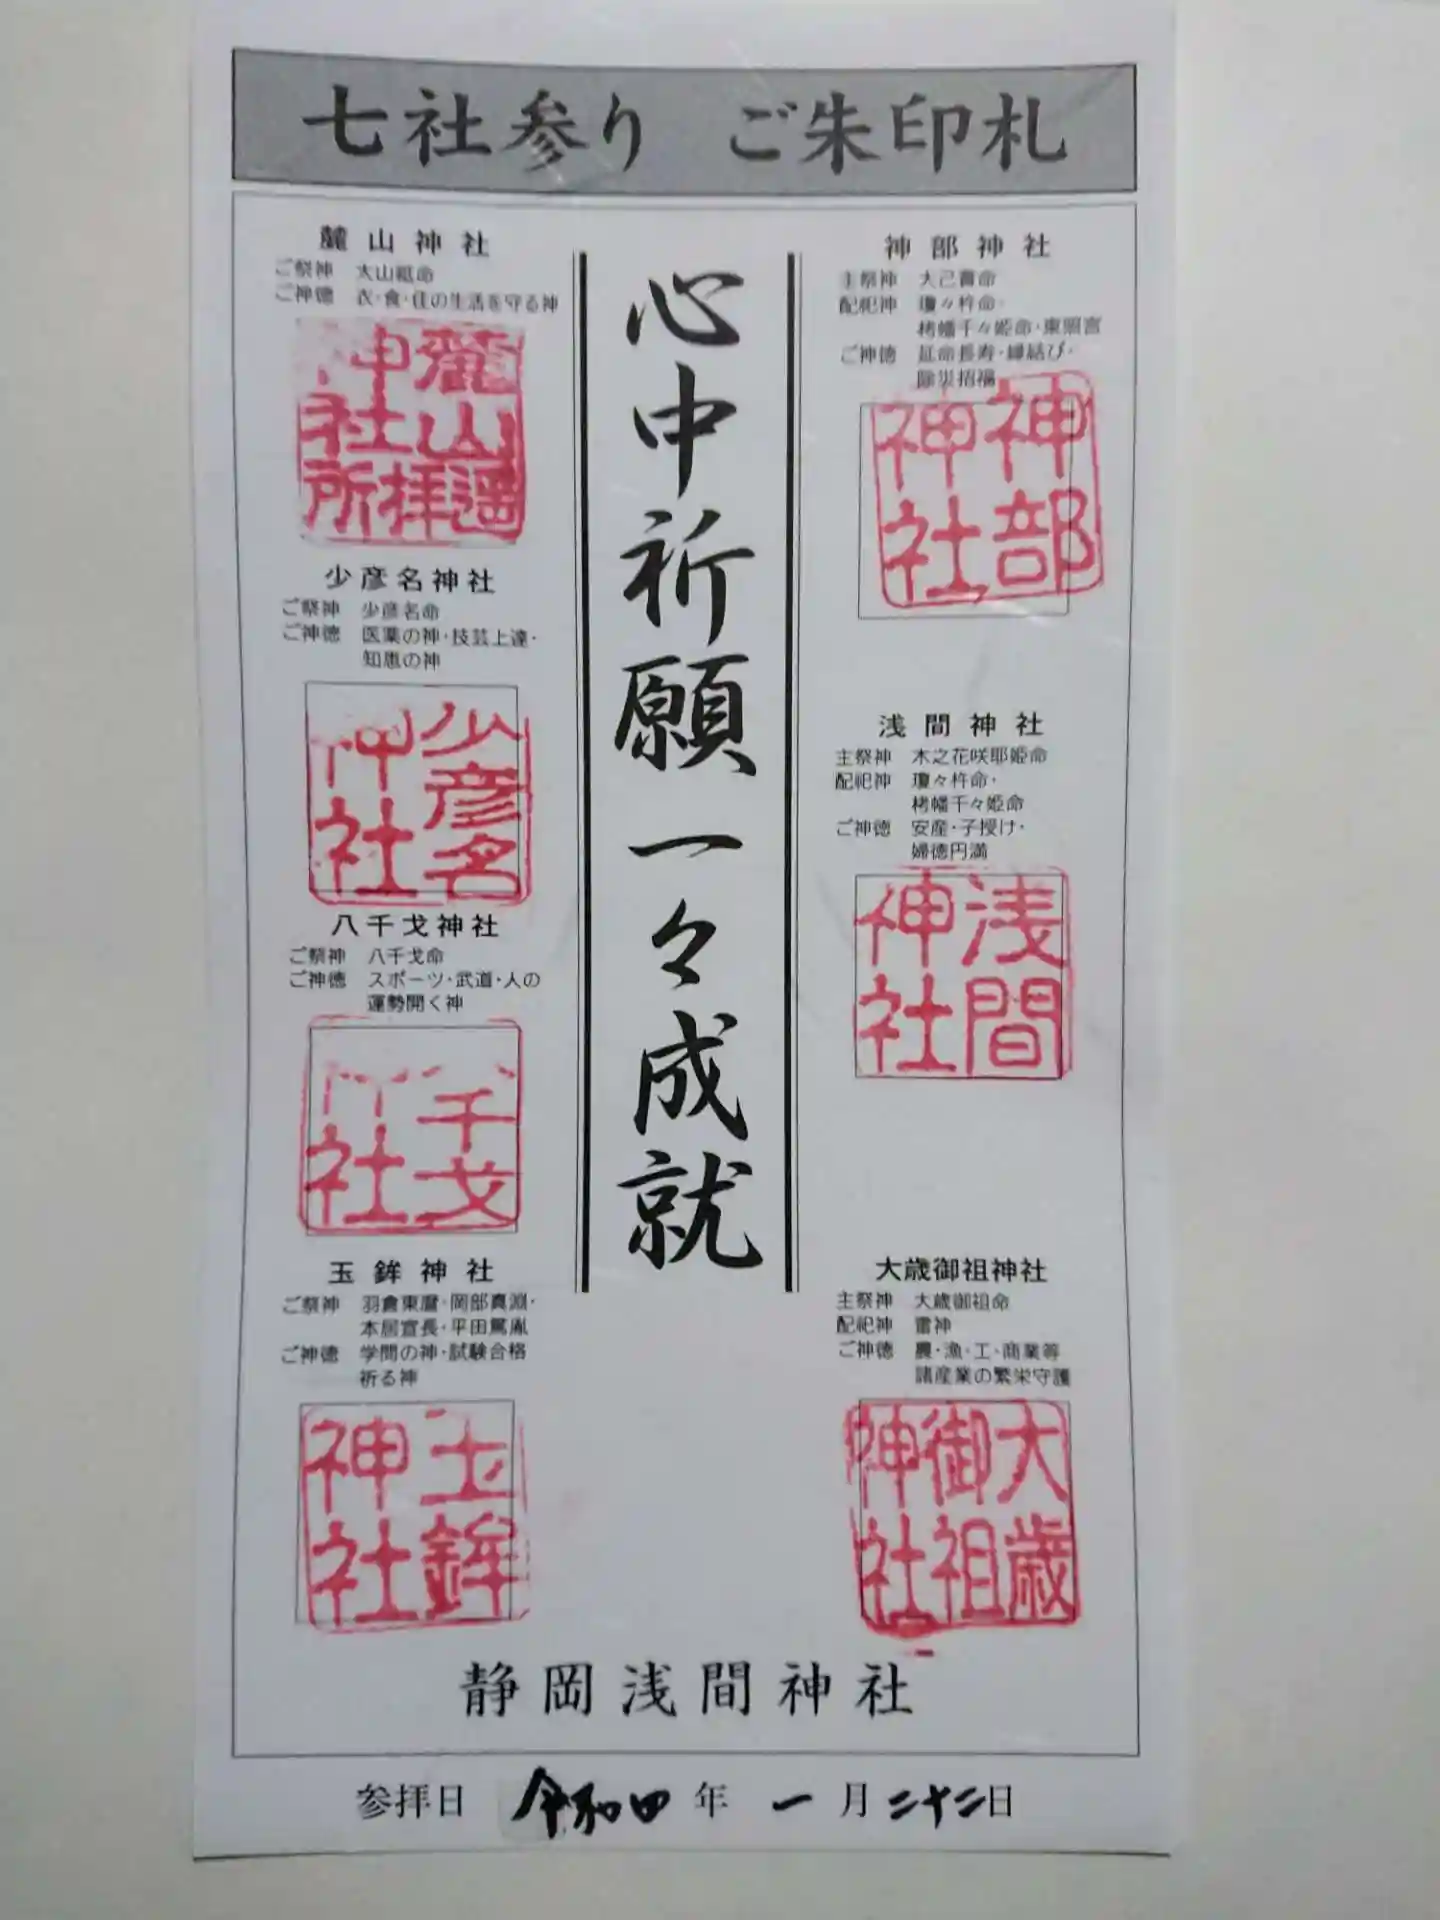 七社参り ご朱印札
神部神社
主祭神 大己貴命
配祀神 瓊々杵命・
栲幡千々姫命・東照宮
ご神徳 延命長寿・縁結び・
除災招福
神部
神社
浅間神社
主祭神 木之花咲耶姫命
配祀神 瓊々杵命・
栲幡千々姫命
ご神徳 安産・子授け・
婦徳円満
浅間
神社
大歳御祖神社
主祭神 大歳御祖命
配祀神 雷神
ご神徳 農・漁・工・商業等
諸産業の繁栄守護
大歳
御祖
神社
心中祈願一々成就
麓山神社
ご祭神 大山祇命
ご神徳 衣・食・住の生活を守る神
麓山
神社
遥拝所
少彦名神社
ご祭神 少彦名命
ご神徳 医薬の神・技芸上達・
知恵の神
少彦名
神社
八千戈神社
ご祭神 八千戈命
ご神徳 スポーツ・武道・人の
運勢開く神
千戈
社
玉鉾神社
ご祭神 羽倉東麿・岡部真淵・
本居宣長・平田篤胤
ご神徳 学問の神・試験合格
祈る神
玉鉾
神社
静岡浅間神社
参拝日 令和四年 一月二十二日